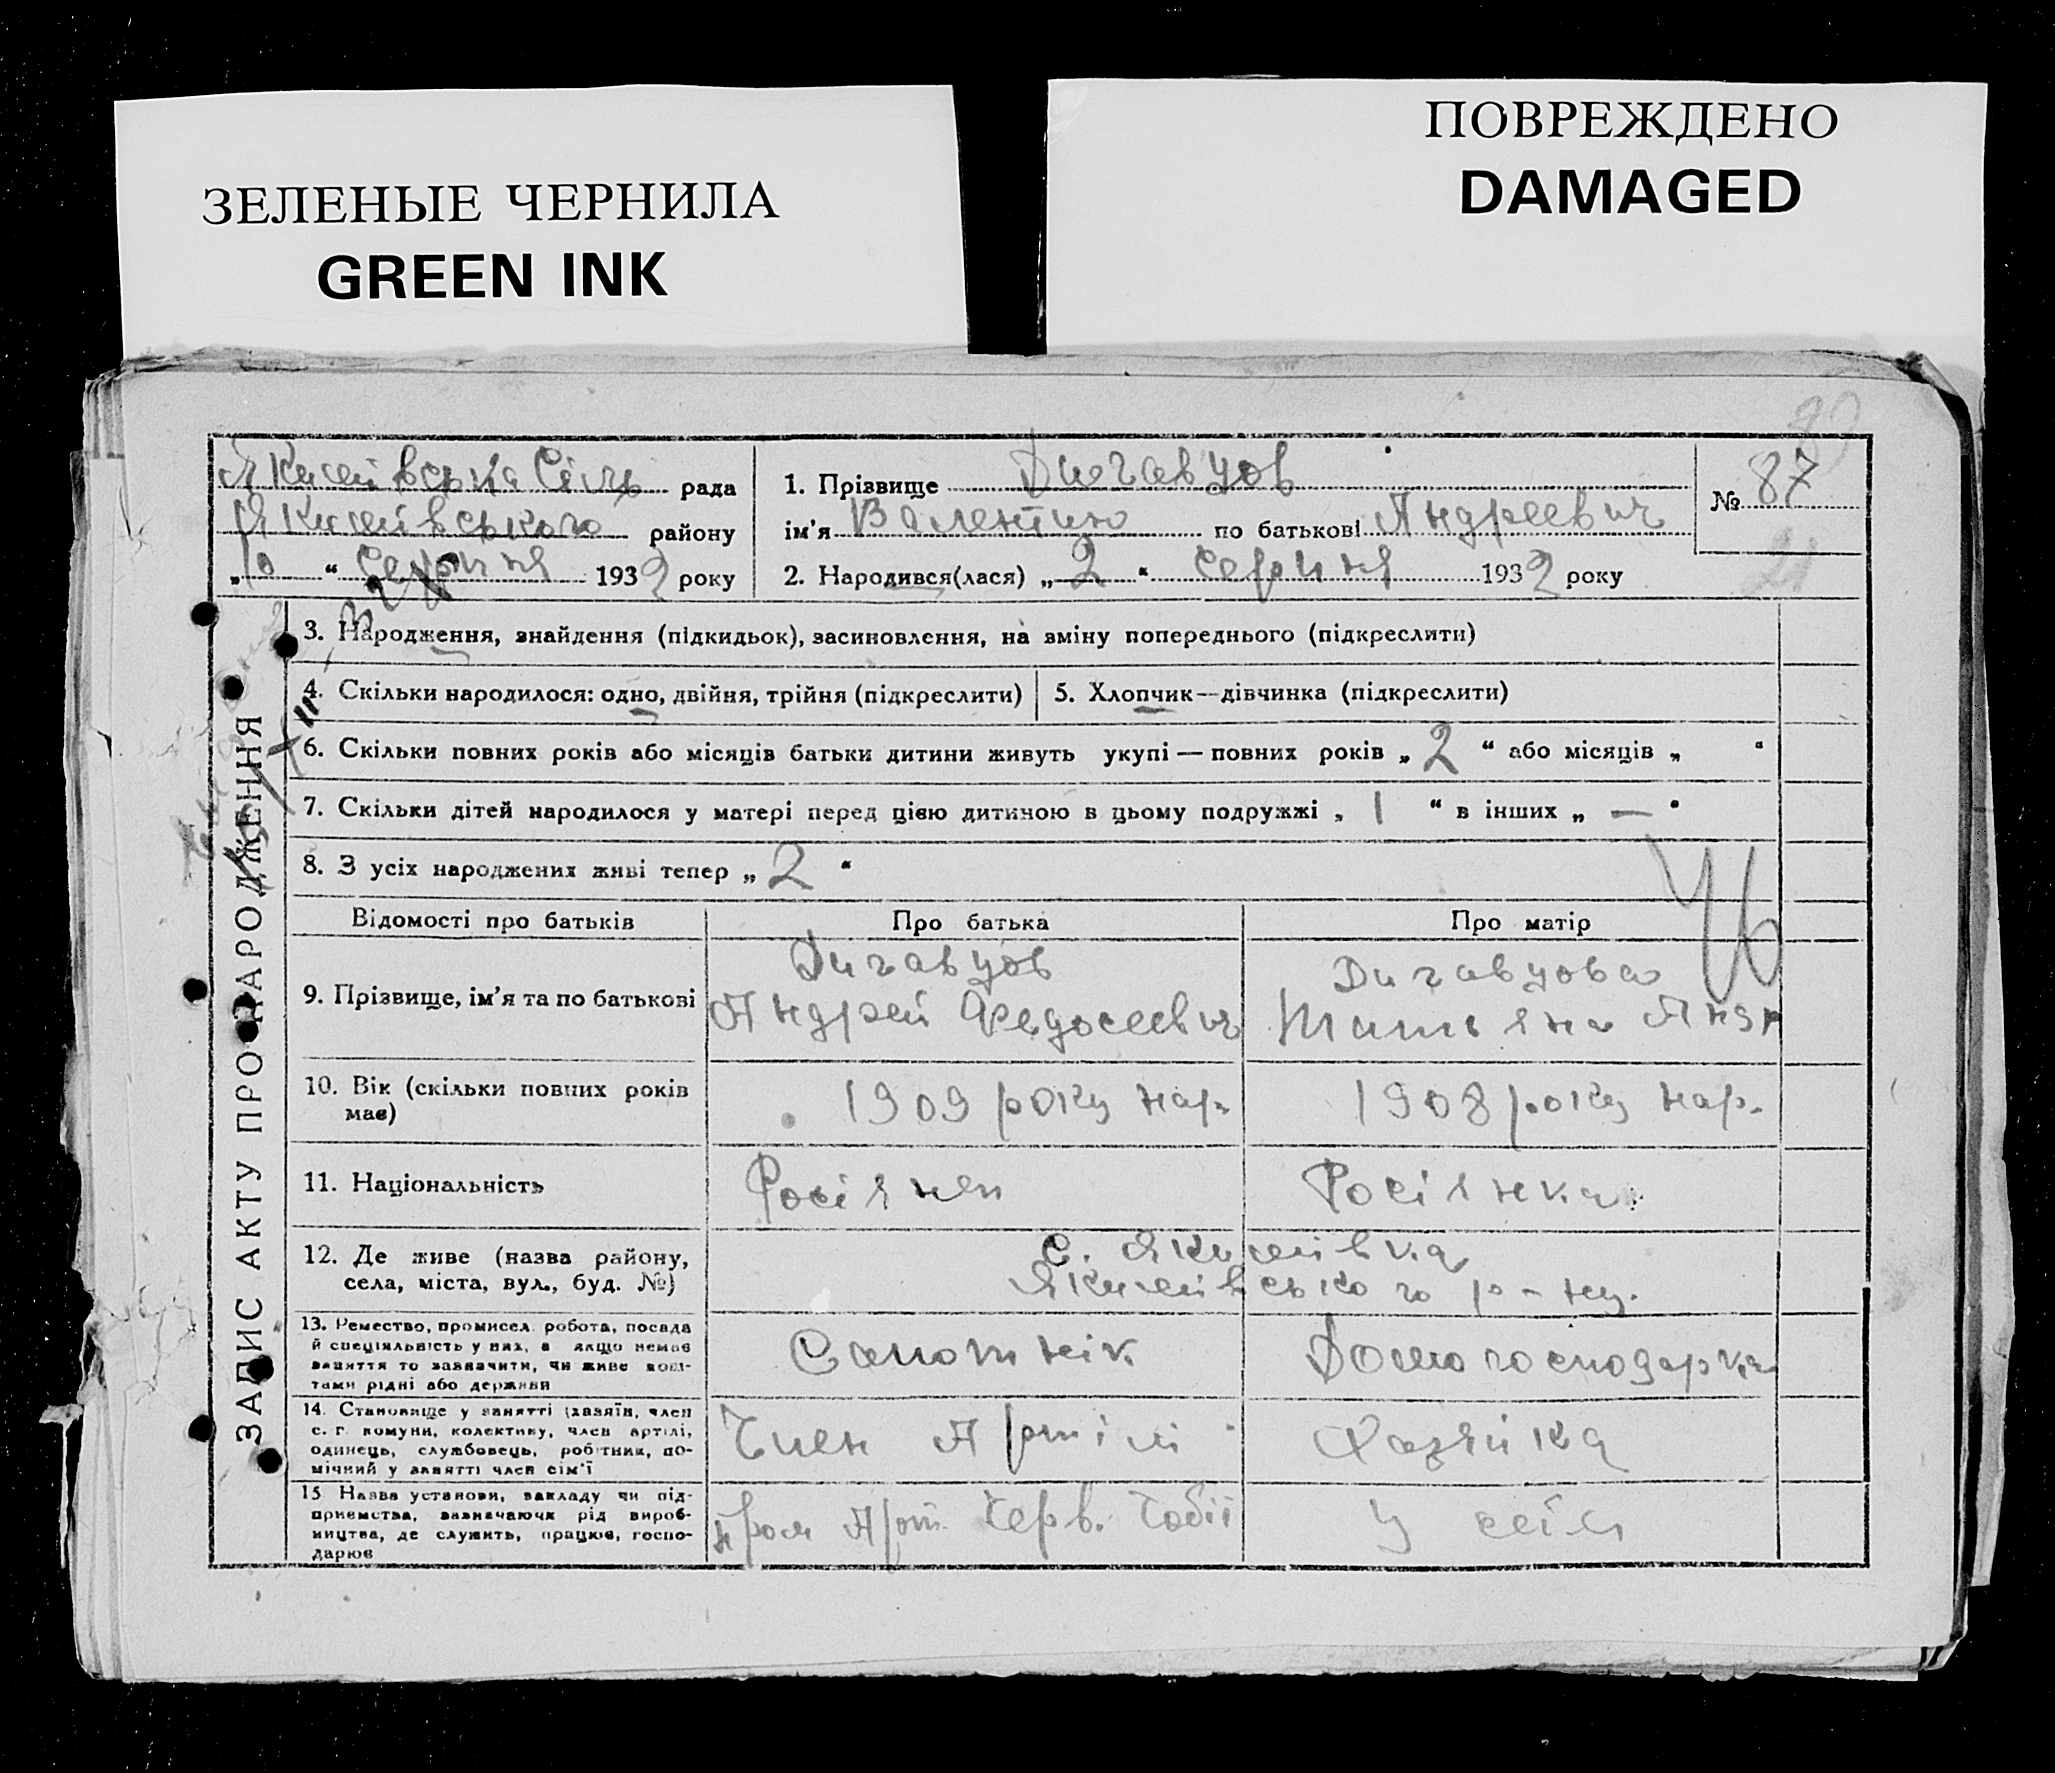 ЗЕЛЕНЫЕ ЧЕРНИЛА
GREEN INK
ПОВРЕЖДЕНО
DAMAGED
Якимівська Сіль рада
Якимівського району
„10“ Серпня 1932 року
1. Прізвище Дигавцов
ім'я Валентин по батькові Андреевич
2. Народився(лася) „2“ серпня 1932 року
№ 87
ЗАПИС АКТУ ПРО НАРОДЖЕННЯ
3. Народження, знайдення (підкидьок), засиновлення, на зміну попереднього (підкреслити)
4. Скільки народилося: одно, двійня, трійня (підкреслити)
5. Хлопчик—дівчинка (підкреслити)
6. Скільки повних років або місяців батьки дитини живуть укупі — повних років „2“ або місяців „ “
7. Скільки дітей народилося у матері перед цією дитиною в цьому подружжі „1“ в інших „—“
8. З усіх народжених живі тепер „2“
Відомості про батьків
Про батька
Про матір
9. Прізвище, ім'я та по батькові
Дигавцов
Андрей Федосеевич
Дигавцова
Татьяна Андр
10. Вік (скільки повних років
має)
1909 року нар.
1908 року нар.
11. Національність
Росіянен
Росіянка
12. Де живе (назва району,
села, міста, вул., буд. №)
с. Якимівка
Якимівського р-ну.
13. Ремество, промисел, робота, посада
й спеціяльність у них, а якщо немає
заняття то зазначити, чи живе кош-
тами рідні або держави
Сапожнік
Домогосподарка
14. Становище у занятті (хазяїн, член
с.-г. комуни, колективу, член артілі,
одинець, службовець, робітник, по-
мічний у занятті член сім'ї
Член Артілі
Хазяйка
15 Назва установи, закладу чи під-
приємства, зазначаючи рід вироб-
ництва, де служить, працює, госпо-
дарює
пром Арт. Черв.
У сім